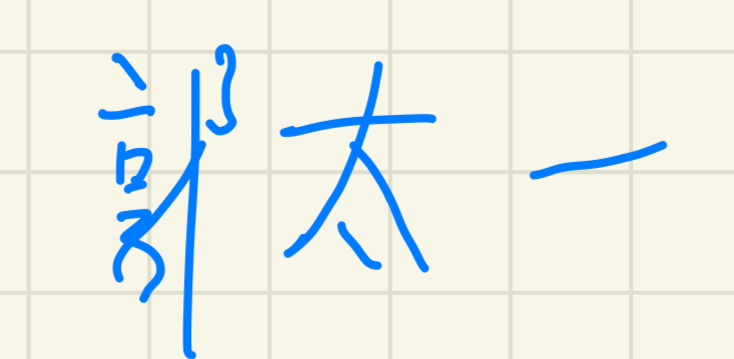 郭太一